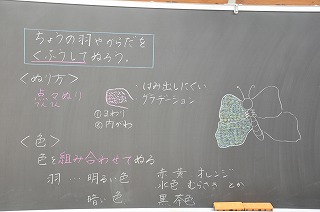 ちょうの羽やからだを
くふうしてぬろう。
<ぬり方>
点々ぬり
はみ出しにくい
グラデーション
①まわり
②内がわ
<色>
色を組み合わせてぬる
羽…明るい色 赤 黄 オレンジ
水色 むらさき とか
暗い色 黒 茶色